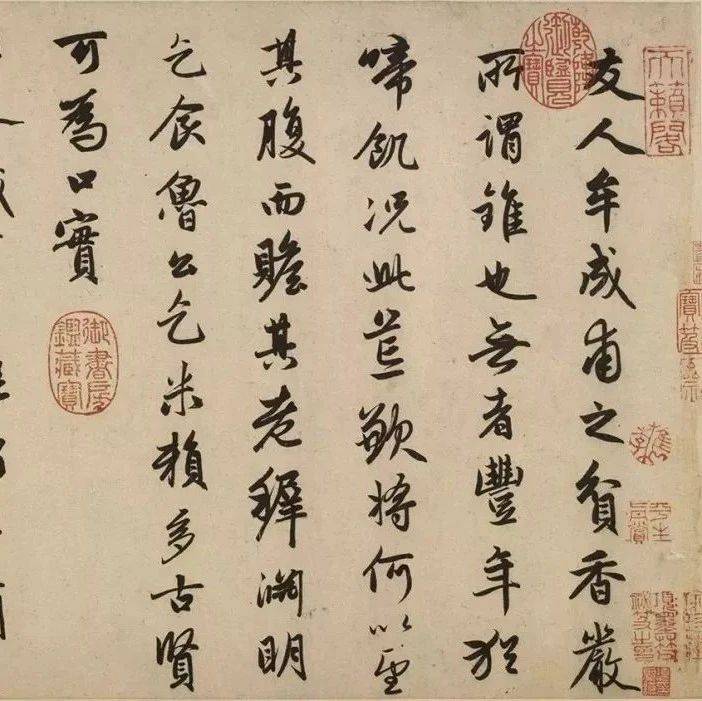 天籟閣
乾隆御覽之寶
友人牟成甫之貧香嚴
所謂錐也無者豐年猶
啼飢況此荒歉將何以
其腹而贍其老稺淵明
乞食魯公乞米賴多古賢
可為口實
御書房鑑藏寶